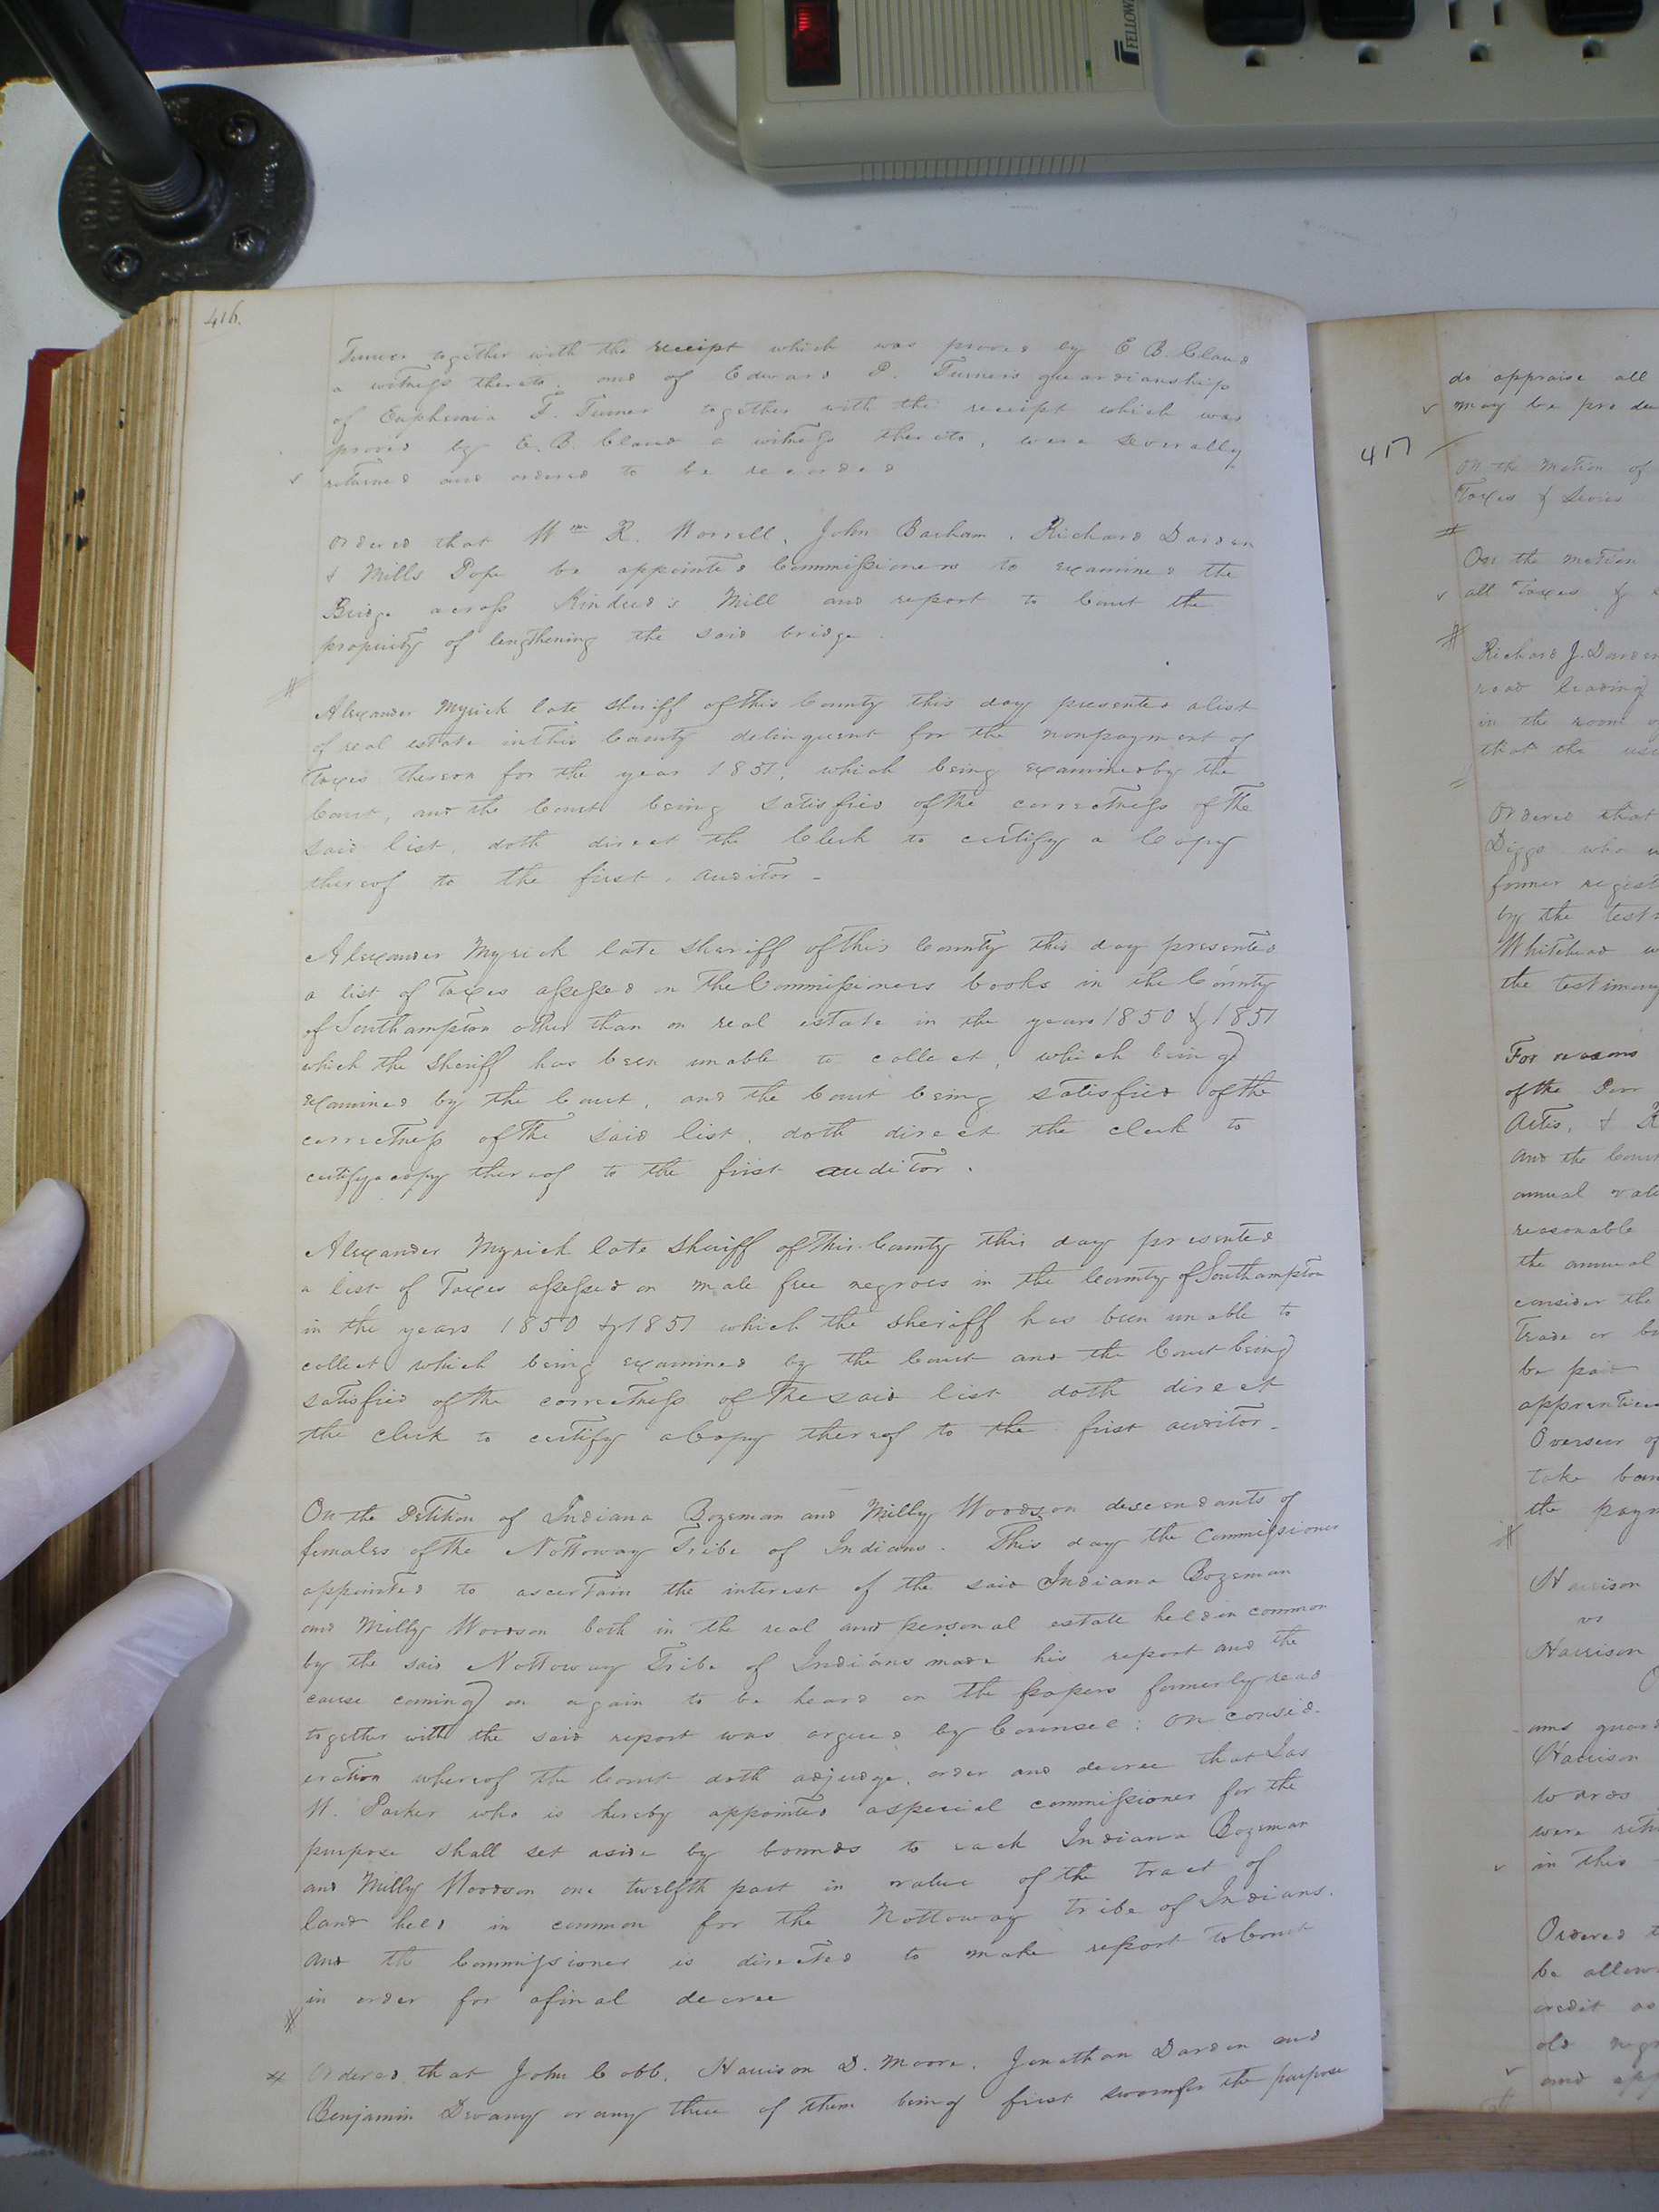 FELLOW
416.
Turner together with the receipt which was proved by E B. Claud
a witness thereto. and of Edward P. Turner's guardianship
of Euphemia T. Turner together with the receipt which was
proved by E. B. Claud a witness thereto, were severally
returned and ordered to be recorded
Ordered that Wm R. Worrell, John Barham, Richard Darden
& Mills Pope be appointed Commissioners to examined the
Bridge across Kindred's Mill and report to Court the
propriety of lengthening the said bridge.
Alexander Myrick late Sheriff of this County this day presented a list
of real estate in this County delinquent for the nonpayment of
Taxes thereon for the year 1851, which being examined by the
Court, and the Court being satisfied of the correctness of the
said list, doth direct the Clerk to certify a Copy
thereof to the first. auditor -
Alexander Myrick late Sheriff of this County this day presented
a list of Taxes assessed on the Commissioners books in the County
of Southampton other than on real estate in the years 1850 & 1851
which the Sheriff has been unable to collect, which being
examined by the Court, and the Court being satisfied of the
correctness of the said list, doth direct the clerk to
certify a copy thereof to the first auditor.
Alexander Myrick late Sheriff of this County this day presented
a list of Taxes assessed on male free negroes in the County of Southampton
in the years 1850 & 1851 which the Sheriff has been unable to
collect which being examined by the Court and the Court being
satisfied of the correctness of the said list doth direct
the clerk to certify a Copy thereof to the first auditor -
On the Petition of Indiana Bozeman and Milly Woodson descendants of
females of the Nottoway Tribe of Indians. This day the Commissioner
appointed to ascertain the interest of the said Indiana Bozeman
and Milly Woodson both in the real and personal estate held in common
by the said Nottoway Tribe of Indians made his report and the
cause coming on again to be heard on the papers formerly read
together with the said report was argued by Counsel: On consid-
eration whereof the Court doth adjudge, order and decree that Jas
W. Parker who is hereby appointed a special commissioner for the
purpose shall set aside by bounds to each Indiana Bozeman
and Milly Woodson one twelfth part in value of the tract of
land held in common for the Nottoway tribe of Indians.
And the Commissioner is directed to make report to Court
in order for a final decree
Ordered that John Cobb, Harrison D. Moore, Jonathan Darden and
Benjamin Devany or any three of them being first sworn for the purpose
do appraise all
may be produ
417
On the motion of
Taxes & Levies
On the motion
all Taxes &
Richard J. Darden
road leading
in the room of
that the usu
Ordered that
Diggs who w
former regist
by the testi
Whitehead w
the testimony
For reasons
of the Poor
Acts, & R
and the Court
annual valu
reasonable
the annual
consider the
Trade or bu
be paid
apprentice
Overseer of
take bon
the paym
Harrison
vs
Harrison
ams guard
Harrison
wards
were retu
in this
Ordered t
be allow
credit as
old negr
and app